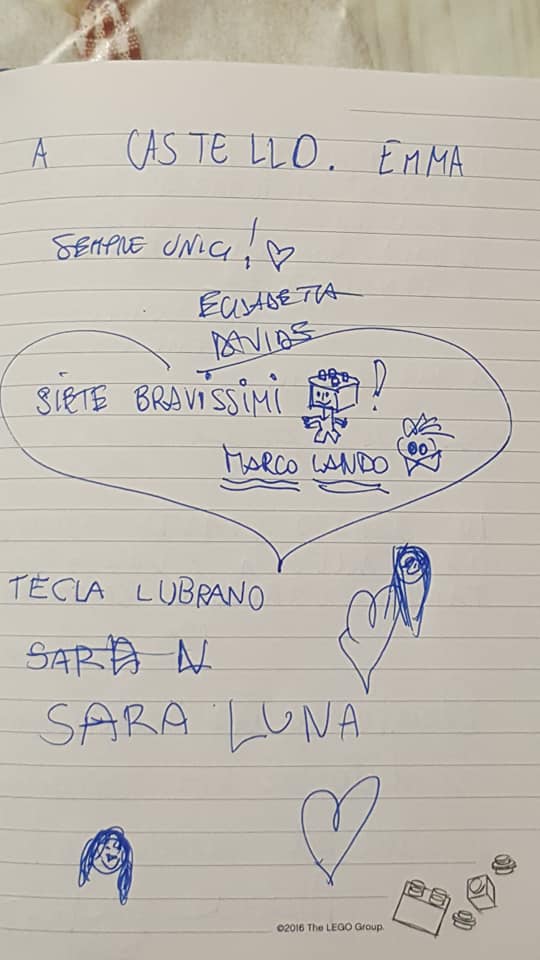 A CASTELLO. EMMA
SEMPRE UNICI!
ELISABETTA
DAVIDE
SIETE BRAVISSIMI!
MARCO LANDO
TECLA LUBRANO
SARA N
SARA LUNA
©2016 The LEGO Group.